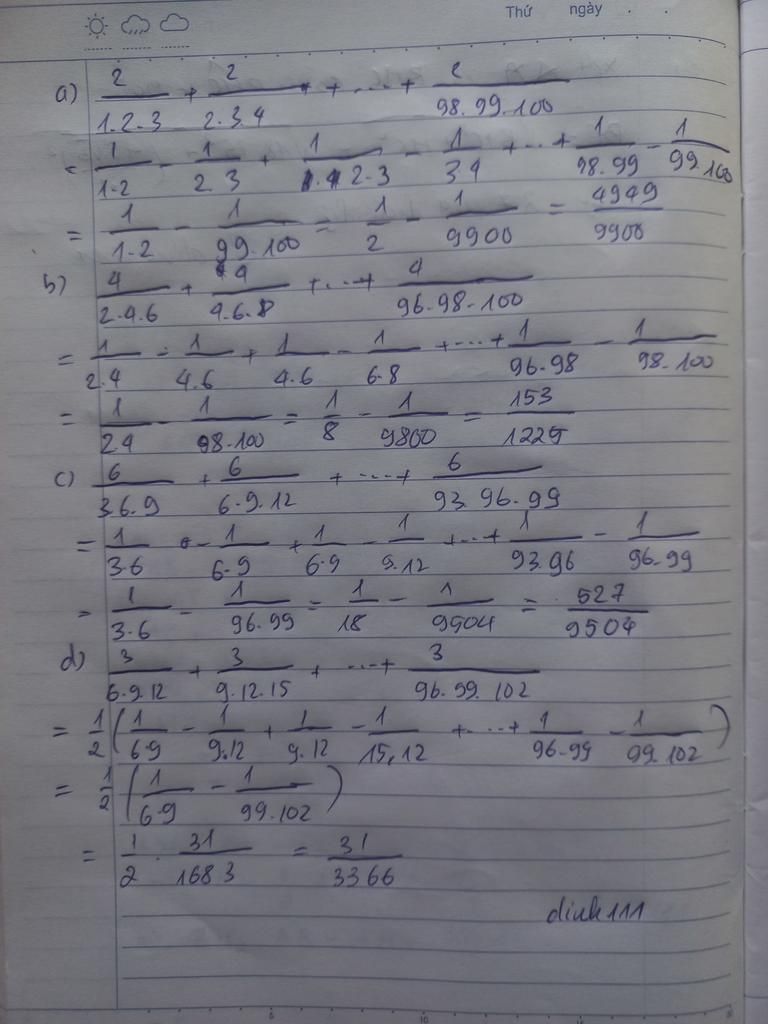 Thứ ngày . .
a) 2/1.2.3 + 2/2.3.4 + + ... + 2/98.99.100
= 1/1.2 - 1/2.3 + 1/2.3 - 1/3.4 + ... + 1/98.99 - 1/99.100
= 1/1.2 - 1/99.100 = 1/2 - 1/9900 = 4949/9900
b) 4/2.4.6 + 4/4.6.8 + ... + 4/96.98.100
= 1/2.4 - 1/4.6 + 1/4.6 - 1/6.8 + ... + 1/96.98 - 1/98.100
= 1/2.4 - 1/98.100 = 1/8 - 1/9800 = 153/1225
c) 6/3.6.9 + 6/6.9.12 + ... + 6/93.96.99
= 1/3.6 - 1/6.9 + 1/6.9 - 1/9.12 + ... + 1/93.96 - 1/96.99
= 1/3.6 - 1/96.99 = 1/18 - 1/9504 = 527/9504
d) 3/6.9.12 + 3/9.12.15 + ... + 3/96.99.102
= 1/2 (1/6.9 - 1/9.12 + 1/9.12 - 1/15,12 + ... + 1/96.99 - 1/99.102)
= 1/2 (1/6.9 - 1/99.102)
= 1/2 . 31/1683 = 31/3366
dinh111